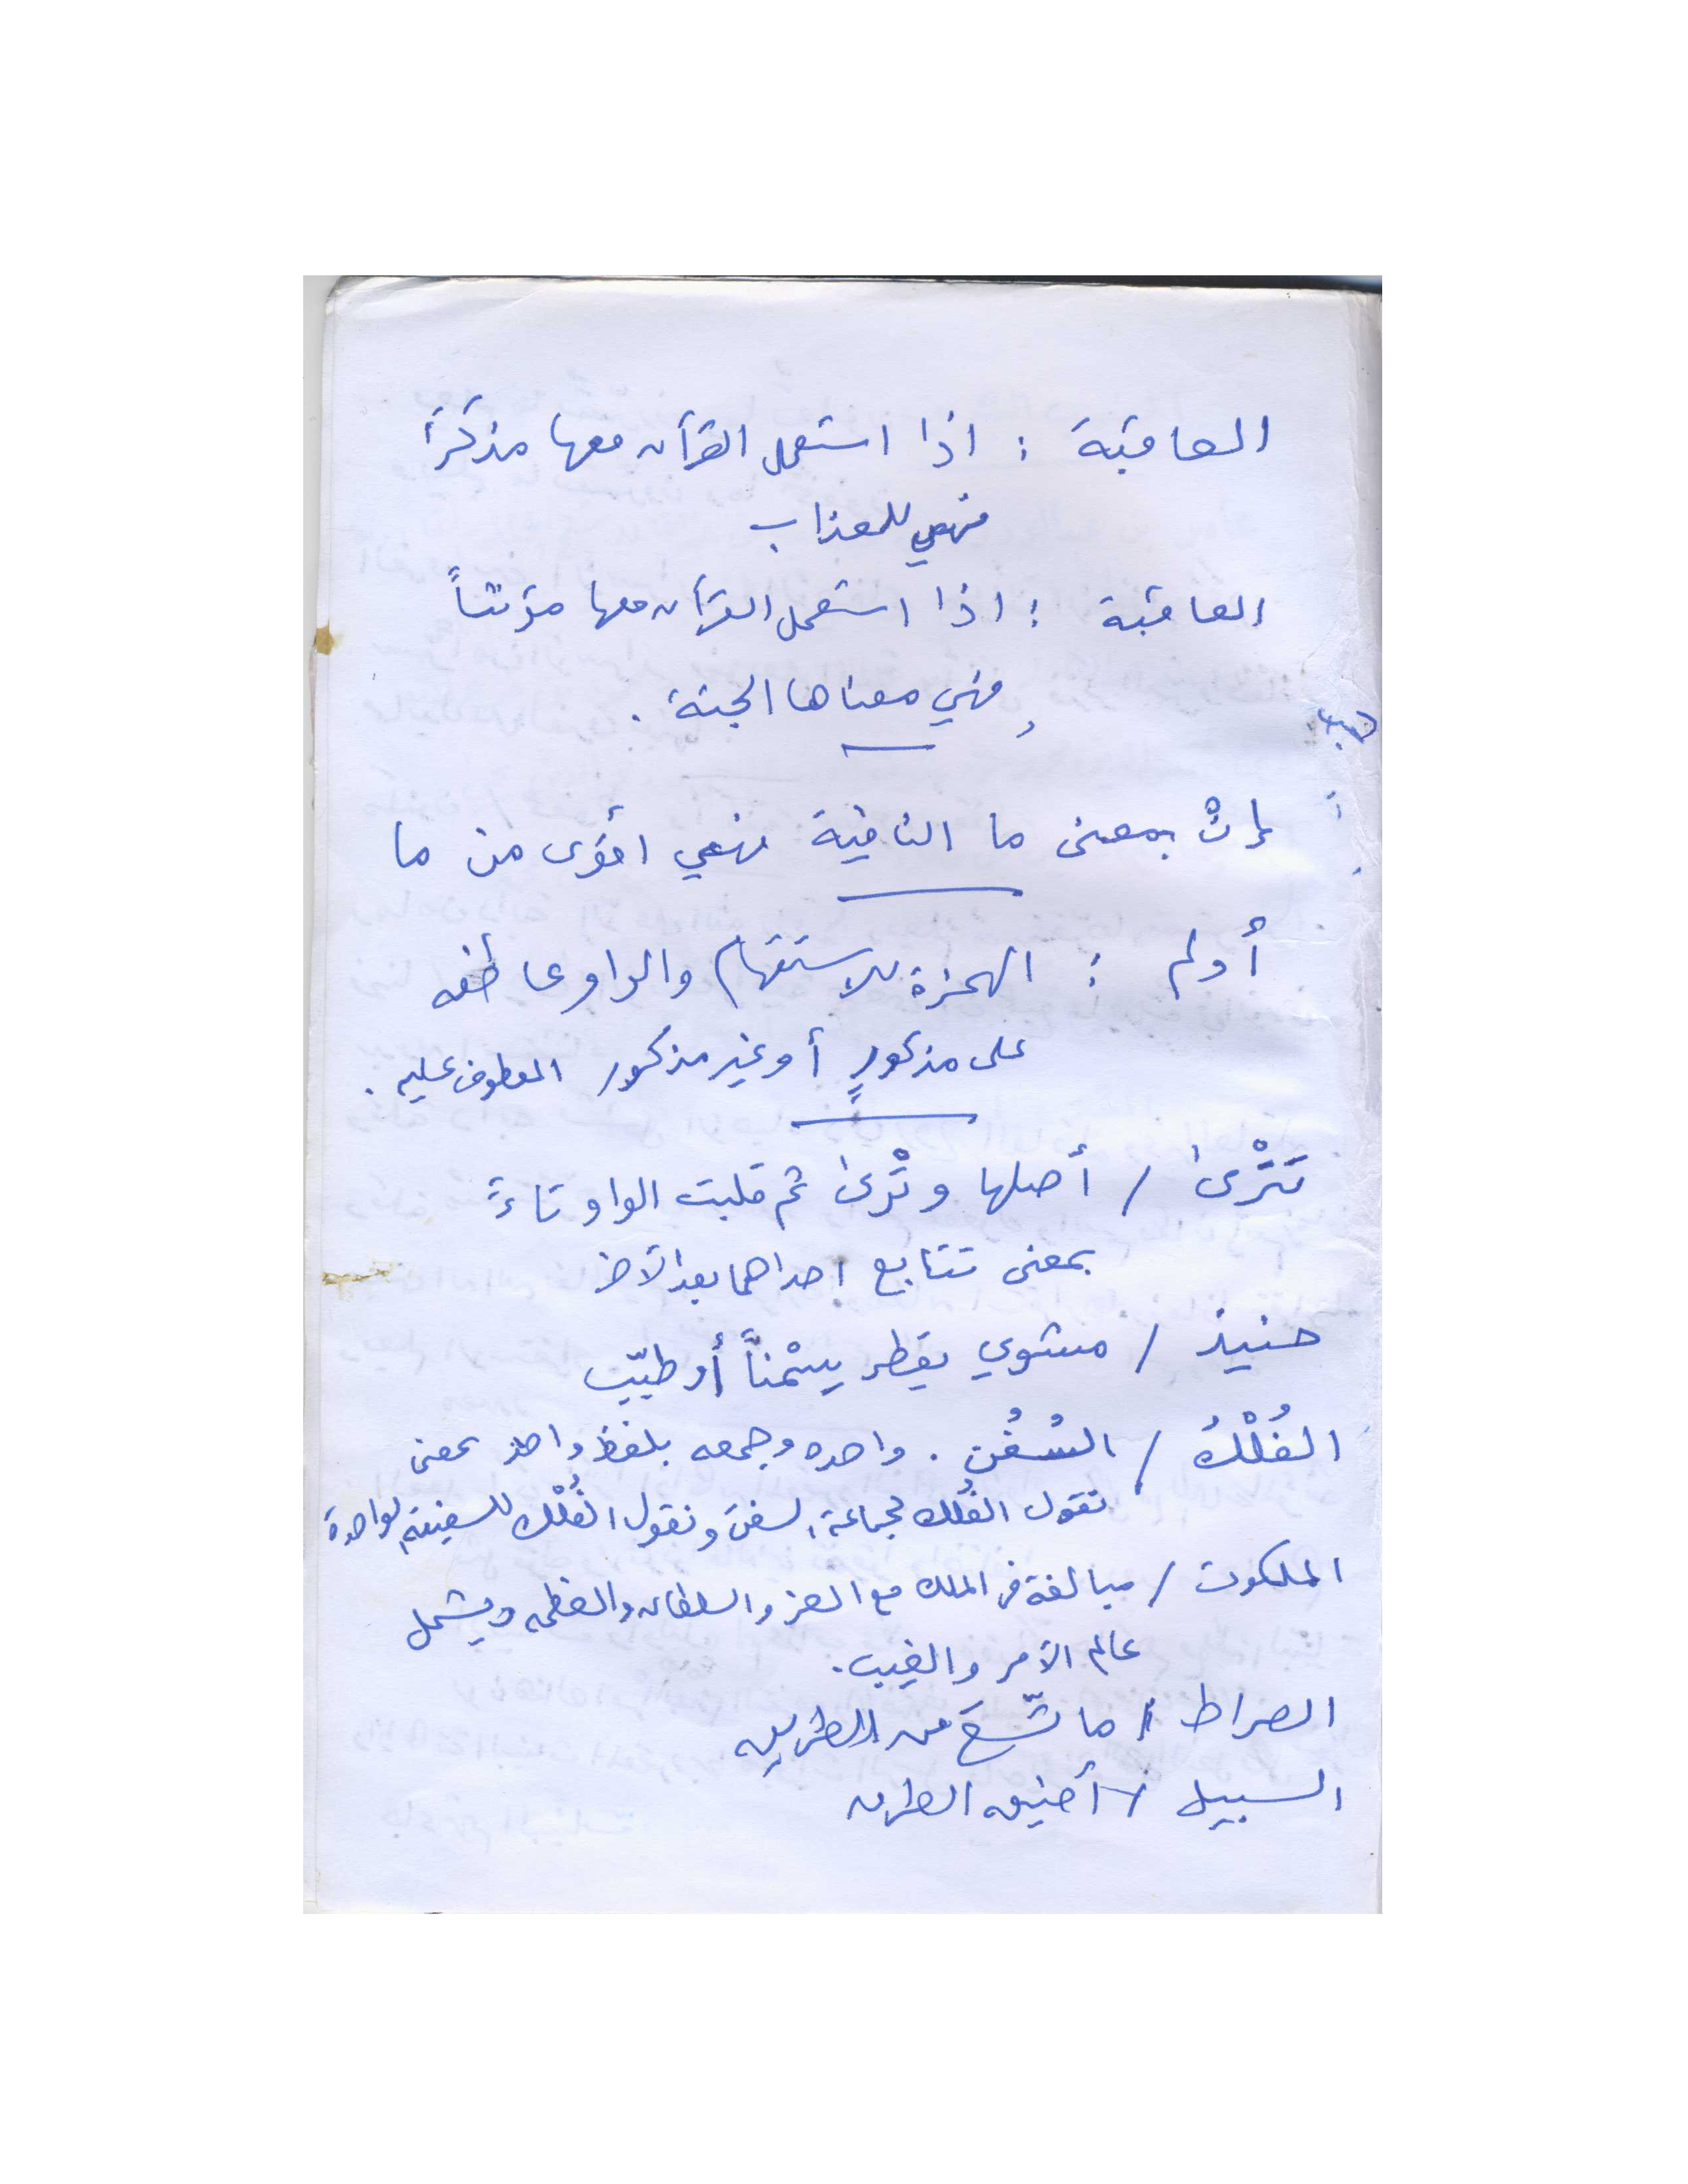 العاقبة : اذا استعمل القرآن معها مذكراً
فهي للعذاب
العاقبة : اذا استعمل القرآن معها مؤنثاً
فهي معناها الجنة .
إنْ بمعنى ما النافية فهي أقوى من ما
أولم : الهمزة للاستفهام والواو عاطفه
على مذكورٍ أو غير مذكور المعطوف عليه .
تَتْرىٰ / أصلها وتْرىٰ ثم قلبت الواو تاءً
بمعنى تتابع احداهما بعد الآخر
حنيذ / مشوي يقطر سمْناً أو طيّب
الفُلْكُ / السُفُن . واحده وجمعه بلفظ واحد بمعنى
نقول الفُلك لجماعة السفن ونقول الفُلْك للسفينة الواحدة
الملكوت / مبالغة في الملك مع العز والسلطان والعظمه ويشمل
عالم الأمر والغيب .
الصراط / ما تّسعَ من الطريق
السبيل / أضيق الطرق